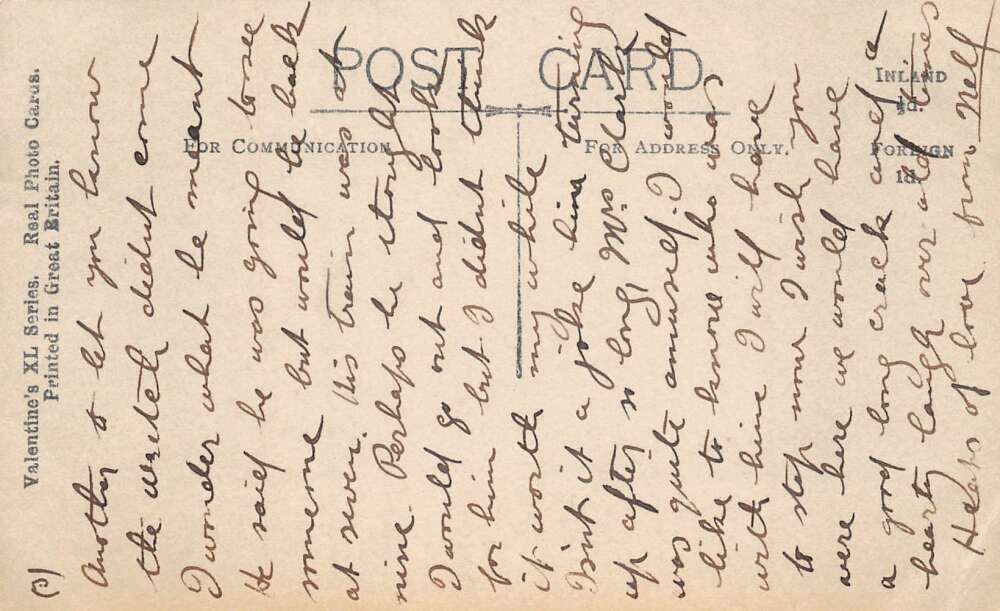 (3)
Valentine's XL Series. Real Photo Cards.
Printed in Great Britain.
POST CARD
FOR COMMUNICATION
FOR ADDRESS ONLY.
INLAND
½d.
FOREIGN
1d.
Another to let you know
the wretch didnt come
I wonder what he meant
He said he was going to see
someone but would be back
at seven. His train was at
nine. Perhaps he thought
I would go out and look
for him but I didnt think
it worth my while
Isnt it a joke him turning
up after so long, Mrs Clark
was quite amused. I would
like to know who was
with him I will have
to stop now I wish you
were here we would have
a good long crack and a
hearty laugh over old times
Heaps of love from Nell